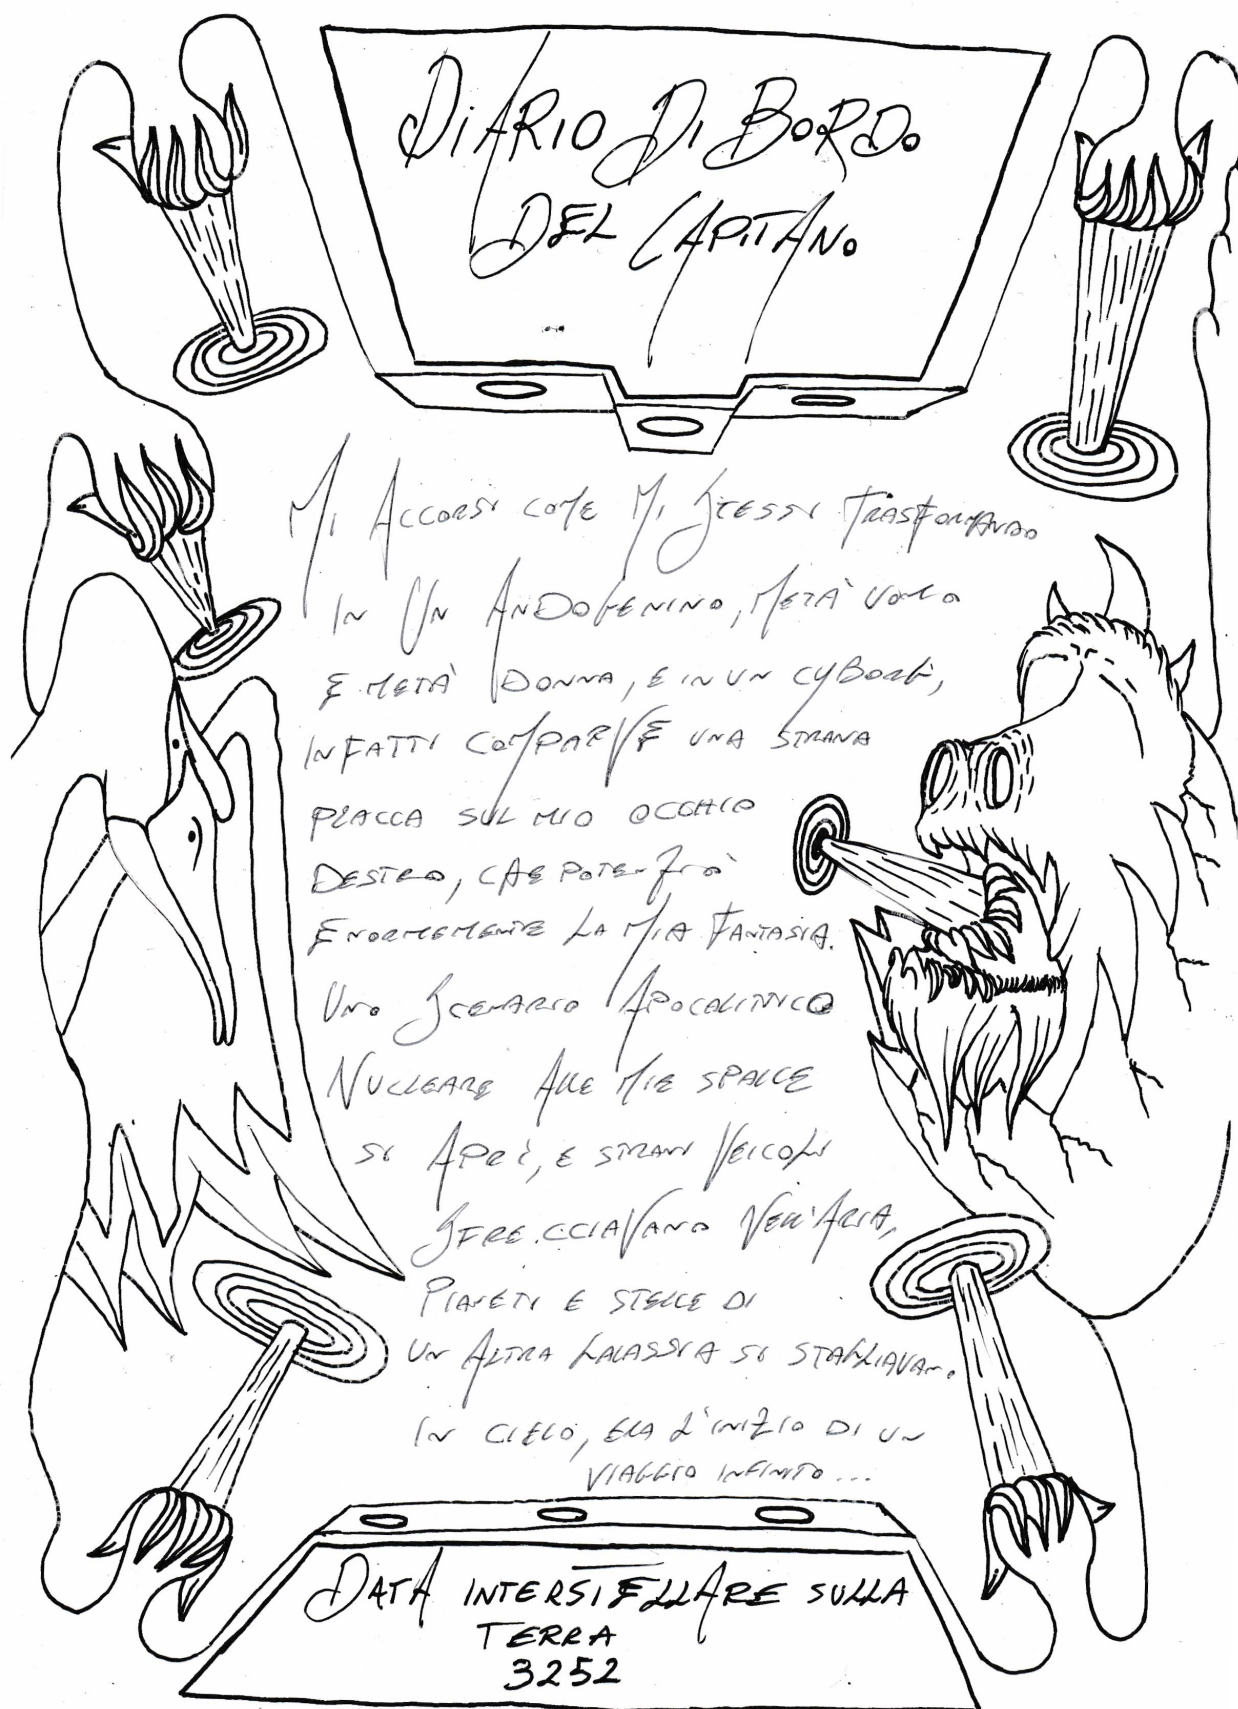 DIARIO DI BORDO
DEL CAPITANO
MI ACCORSI COME MI STESSI TRASFORMANDO
IN UN ANDOGENINO, METÀ UOMO
E METÀ DONNA, E IN UN CYBORG,
INFATTI COMPARVE UNA STRANA
PLACCA SUL MIO OCCHIO
DESTRO, CHE POTENZIÒ
ENORMEMENTE LA MIA FANTASIA.
UNO SCENARIO APOCALITTICO
NUCLEARE ALLE MIE SPALLE
SI APRÌ, E STRANI VEICOLI
SFRECCIAVANO NELL'ARIA,
PIANETI E STELLE DI
UN ALTRA GALASSIA SI STAGLIAVANO
IN CIELO, ERA L'INIZIO DI UN
VIAGGIO INFINITO...
DATA INTERSTELLARE SULLA
TERRA
3252